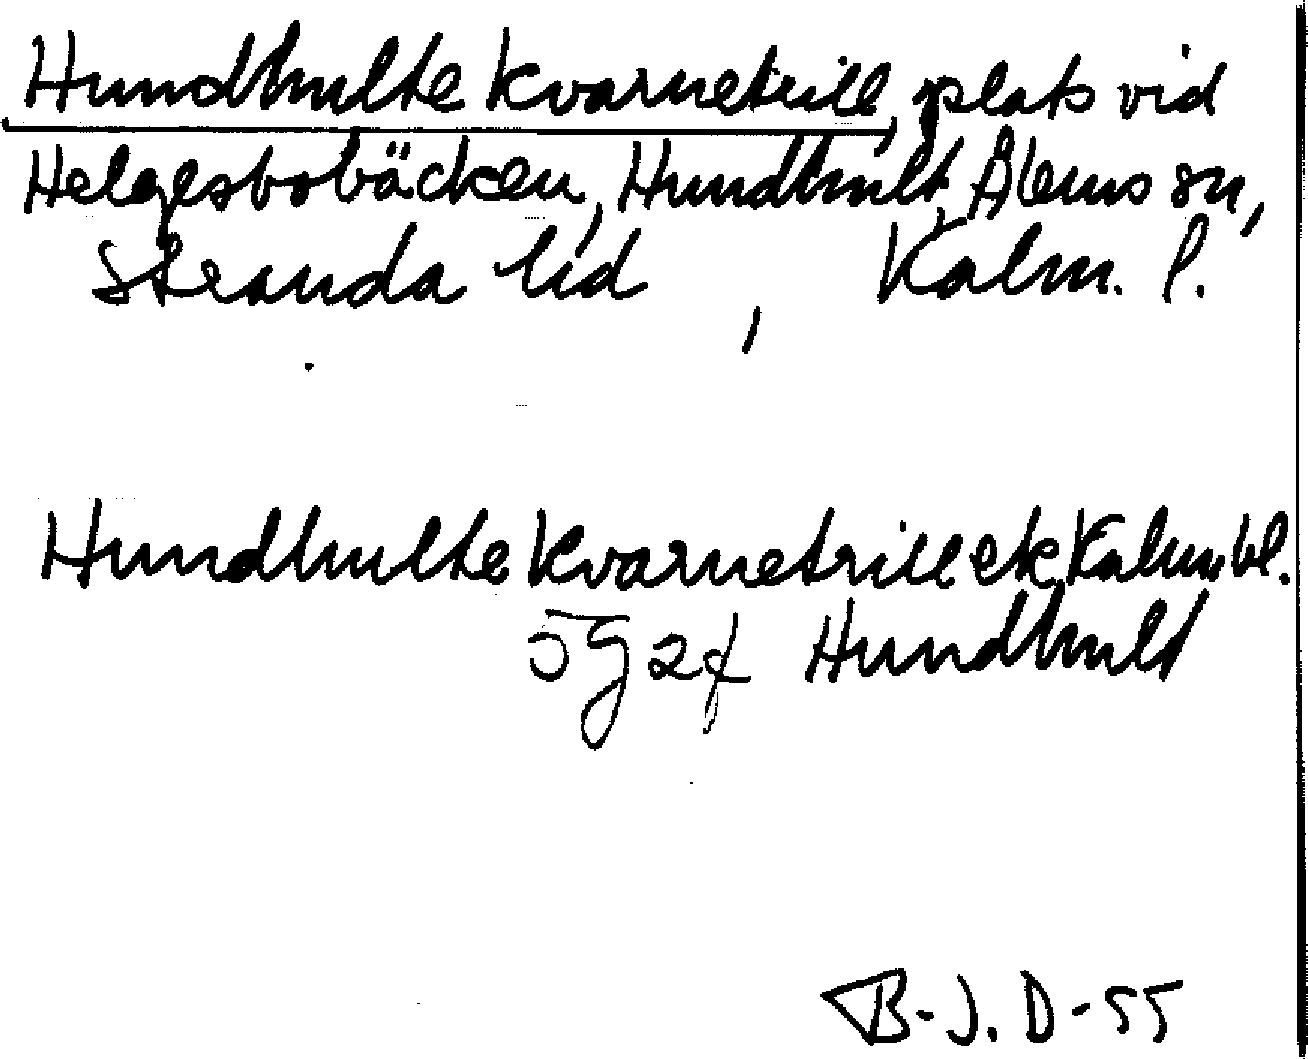 Hundhulte kvarnetrill, plats vid
Helgesbobäcken, Hundhult, Ålems sn,
Stranda hd, Kalm. l.
Hundhulte kvarnetrill ek Kalm. bl.
5G 2f Hundhult
B-J. D-55